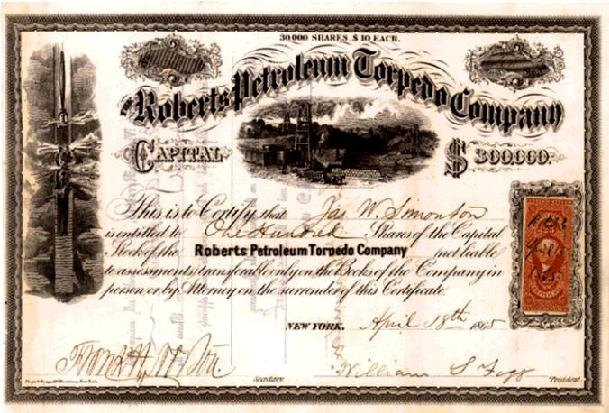 30,000 SHARES $10 EACH.
The Roberts Petroleum Torpedo Company
CAPITAL $300,000
This is to Certify that Jas W. Simonton
is entitled to One Hundred Shares of the Capital
Stock of the Roberts Petroleum Torpedo Company not liable
to assessments, transferable only on the Books of the Company in
person or by Attorney on the surrender of this Certificate.
NEW YORK. April 18th 1865
Secretary. William S Fogg President.